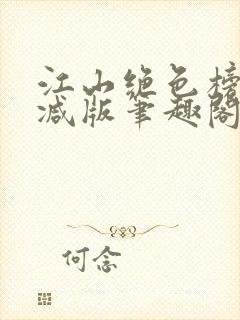 江山绝色榜
减版笔趣阁
何念